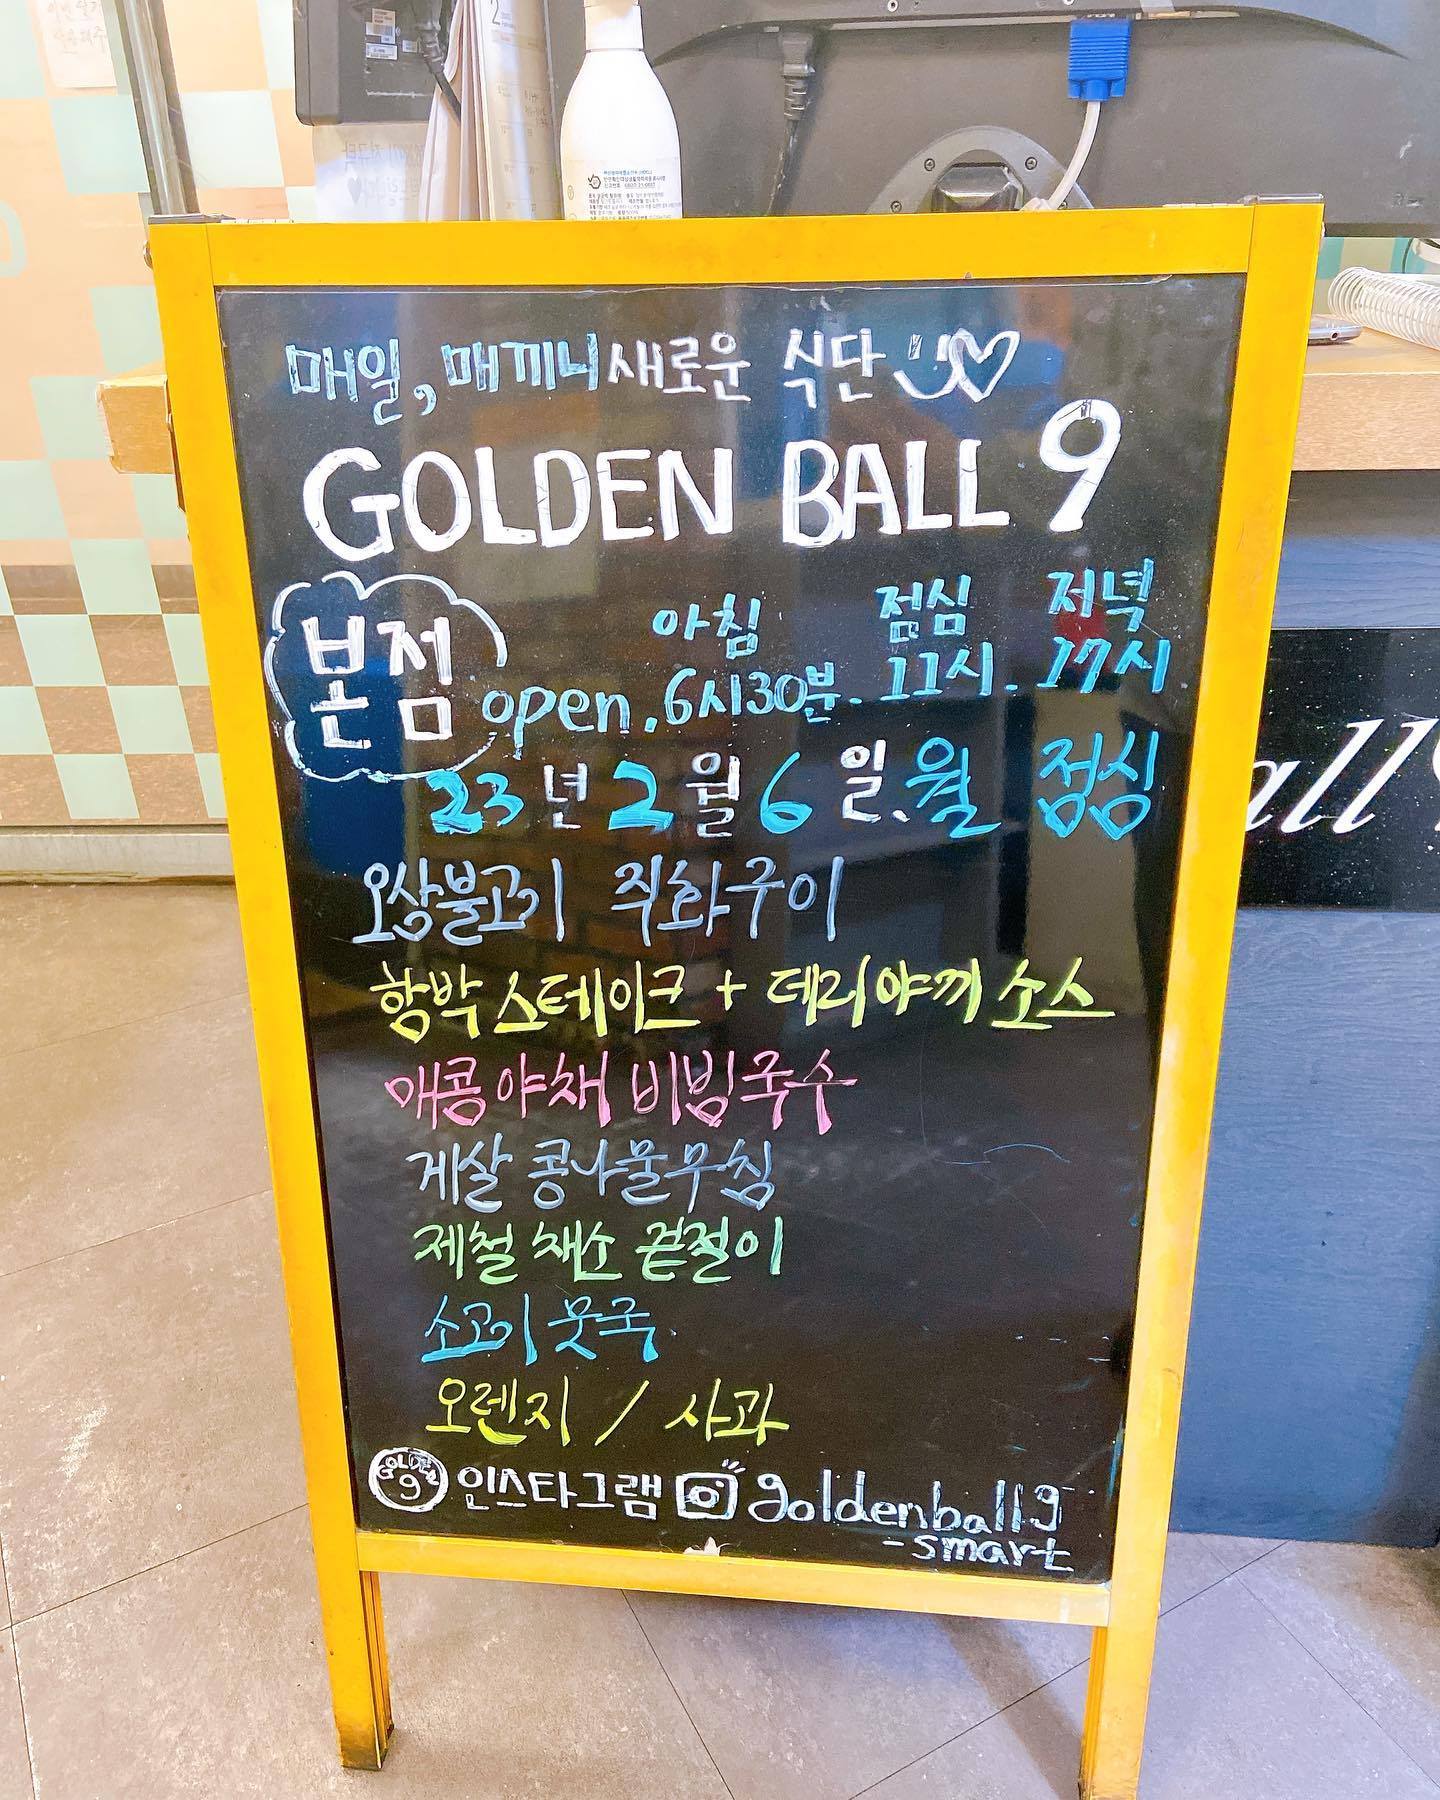 매일, 매끼니 새로운 식단
GOLDEN BALL 9
본점
아침 점심 저녁
open. 6시30분. 11시. 17시
23년 2월 6일. 월 점심
오삼불고기 직화구이
함박 스테이크 + 데리야끼 소스
매콤야채 비빔국수
게살 콩나물무침
제철 채소 겉절이
소고기 뭇국
오렌지 / 사과
GOLDEN 9 인스타그램 goldenball9
-smart
all9